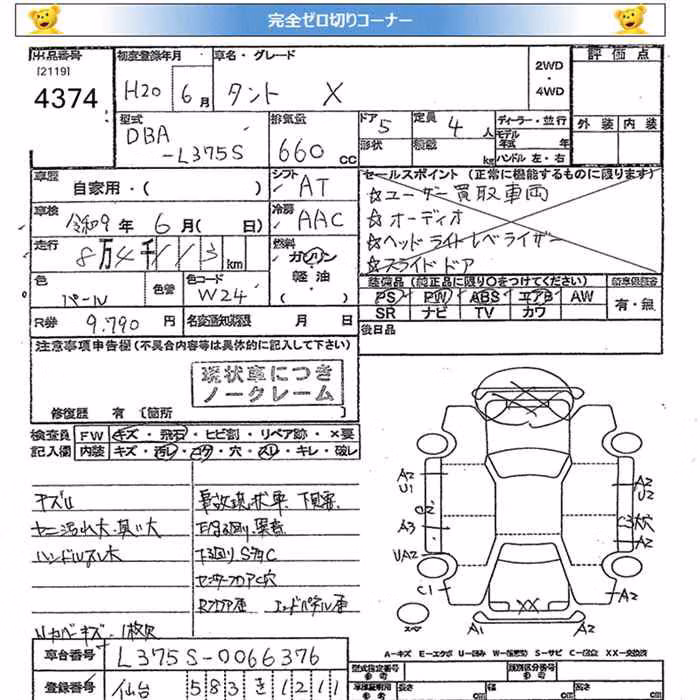 完全ゼロ切りコーナー
出品番号 初度登録年月 車名・グレード 評価点
[2119] 2WD
4374 H20 6月 タント X ・
4WD
型式 排気量 ドア 定員 ディーラー・並行 外装 内装
DBA 5 4人 モデル年式 年
-L375S 660cc 形状 積載 kg ハンドル 左・右
車歴 シフト セールスポイント (正常に機能するものに限ります)
自家用・( ) AT ☆ユーザー買取車両
車検 冷房 ☆オーディオ
令和9年 6月( 日) AAC ☆ヘッドライトレベライザー
走行 燃料 ☆スライドドア
8万4千113km ガソリン
軽油
( )
色 色替 色コード 装備品(純正品に限り○をつけてください)
パール W24 PS PW ABS エアB AW 有・無
SR ナビ TV カワ
R券 9.790円 名変期限 月 日 後日品
注意事項申告欄(不具合内容等は具体的に記入して下さい)
現状車につき
ノークレーム
修復歴 有 [箇所
検査員 FW キズ・飛石・ヒビ割・リペア跡・×要
記入欄 内装 キズ・汚レ・コゲ・穴・スレ・キレ・破レ
キズU 事故現状車 下見審
ヤニ汚れ大・臭い大
ハンドルスレ大 下廻りSサビC
センターフロアC穴
A2
U1
A3
UA2
C1
A1
A2
U2
C3大穴
A2
A2
A2
XX
A-キズ E-エクボ U-凹み W-補修跡 S-サビ C-腐食 XX-交換済
車台番号 L375S-0066376 型式指定番号 類別区分番号
登録番号 仙台 583 き 1211 長さ cm 幅 cm 高さ cm